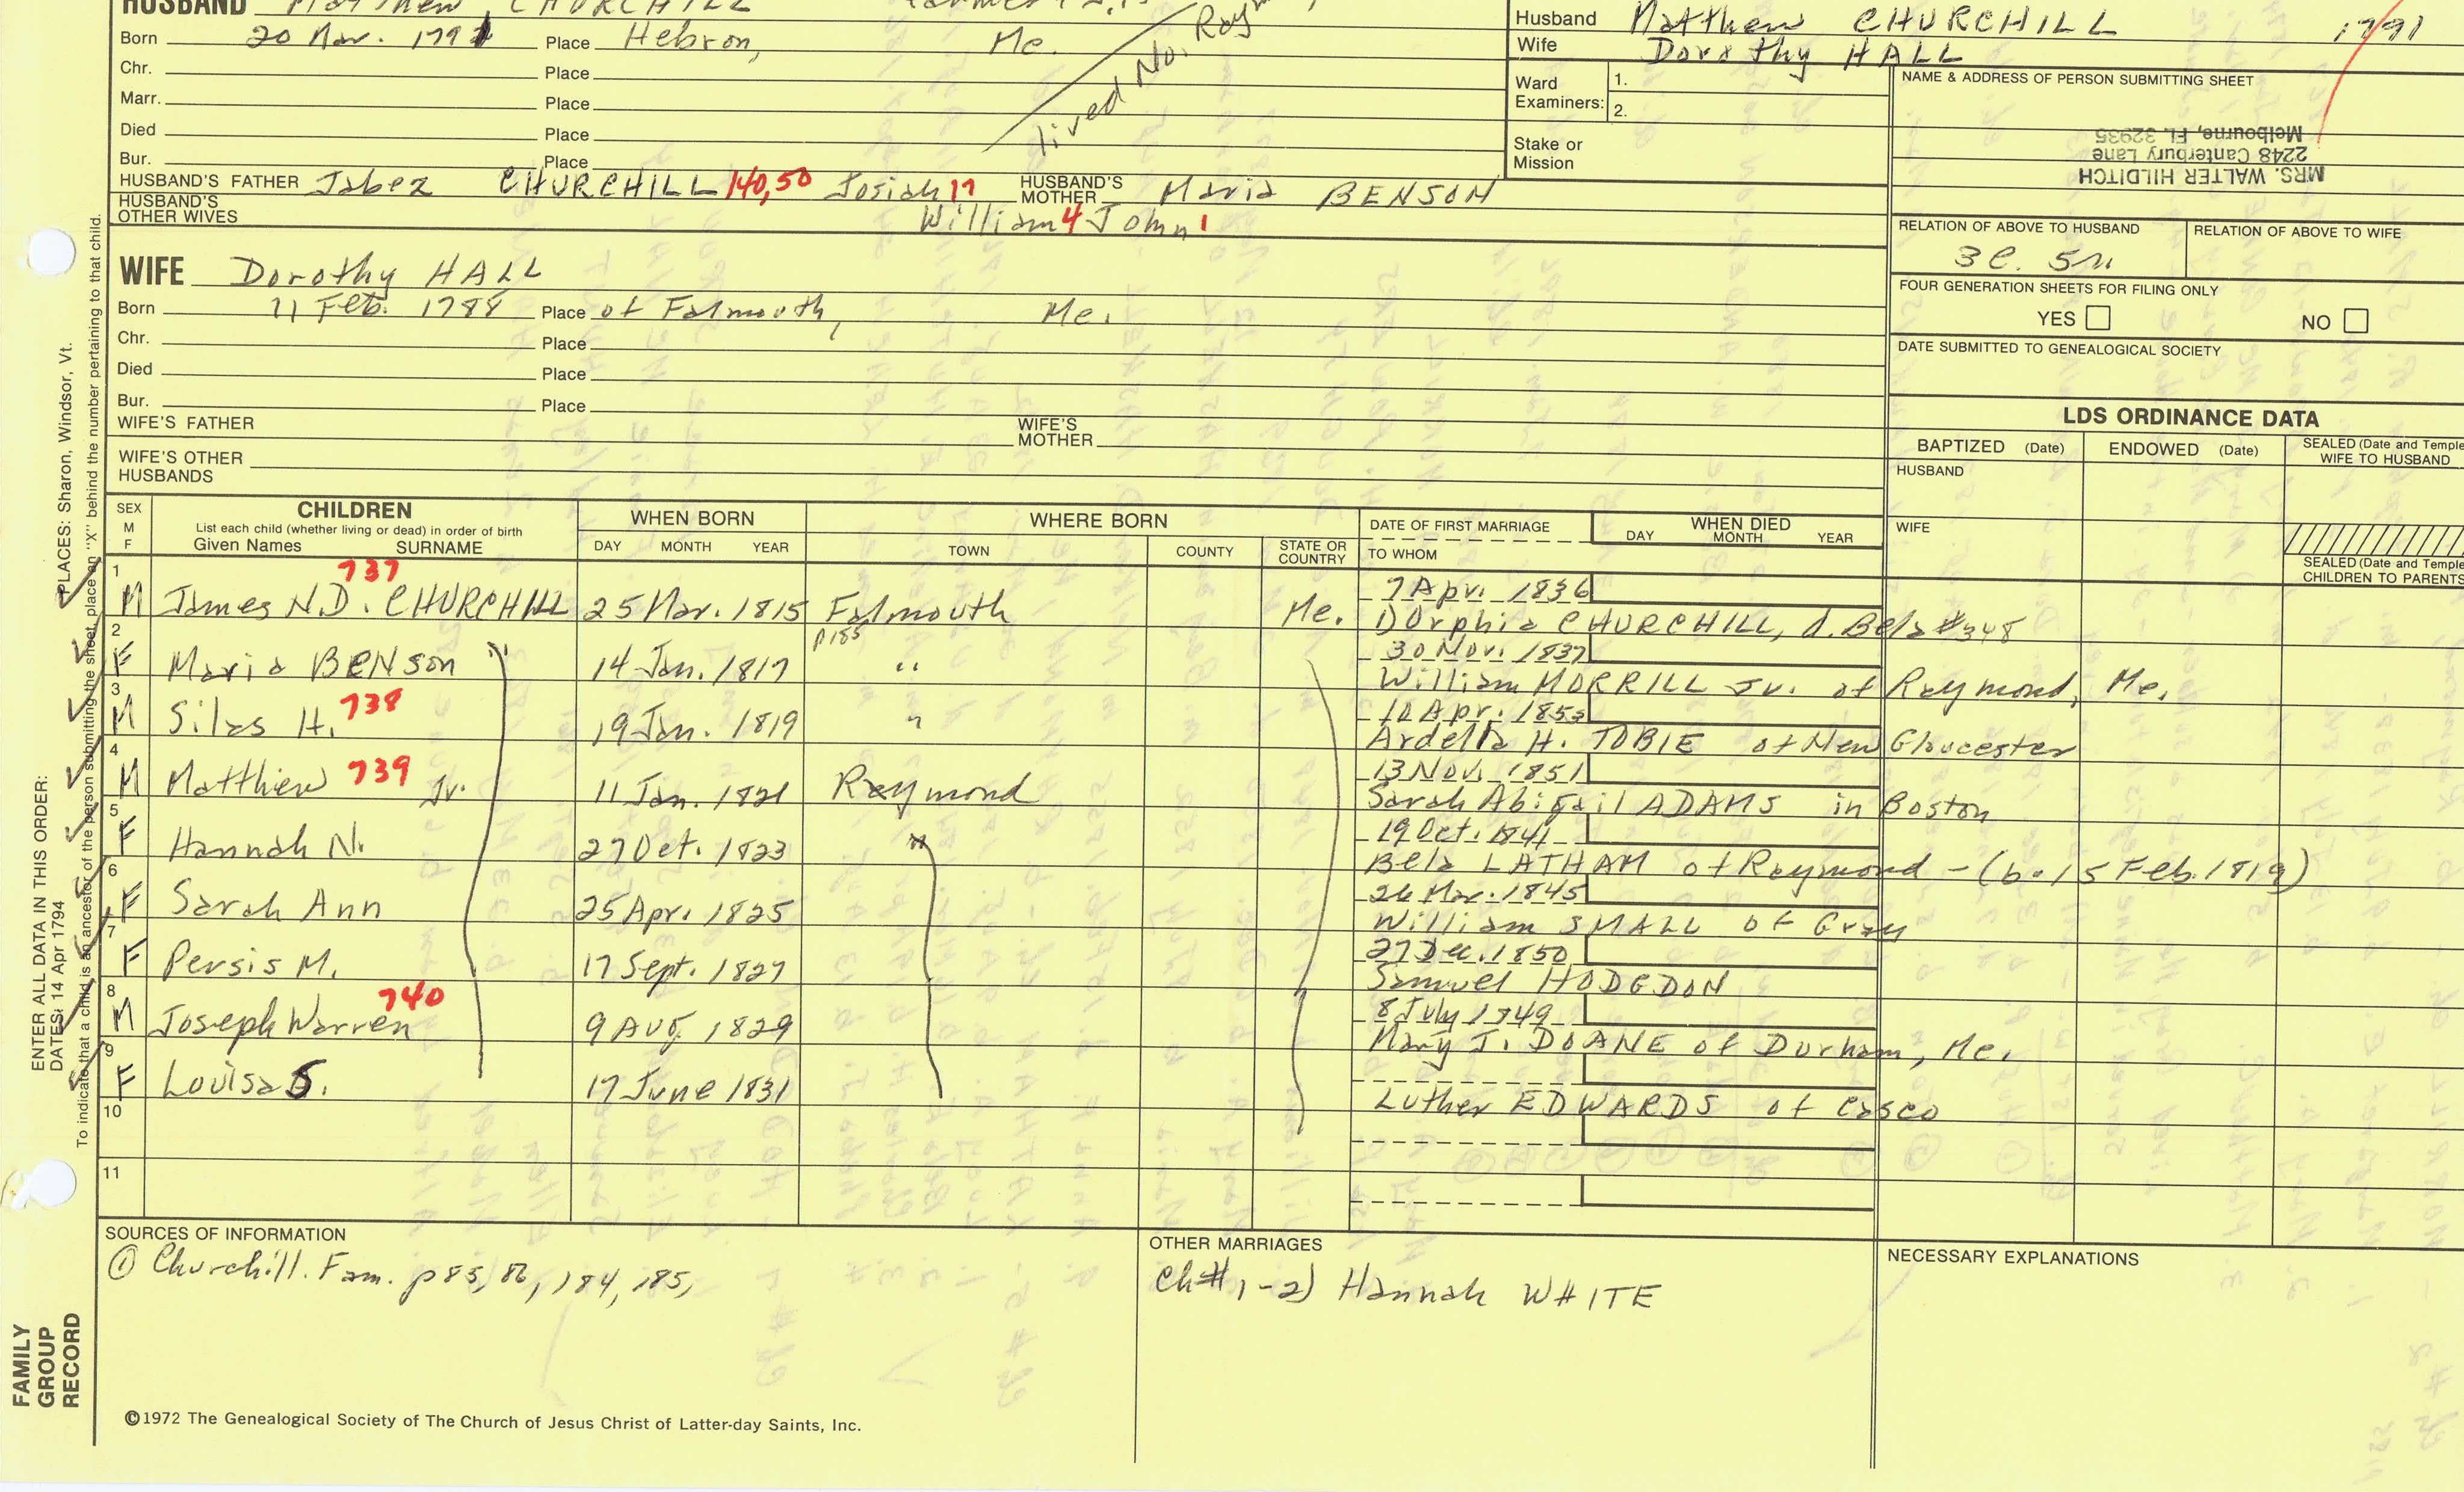 HUSBAND Matthew CHURCHILL
Born 20 Mar. 1791 Place Hebron, Me.
Chr. Place
Marr. Place
Died Place
Bur. Place
lived No. Raym
HUSBAND'S FATHER Jabez CHURCHILL 140,50 Josiah 17 HUSBAND'S MOTHER Maria BENSON
HUSBAND'S OTHER WIVES William 4 John 1
Husband Matthew CHURCHILL 1791
Wife Dorothy HALL
Ward Examiners: 1.
2.
Stake or Mission
NAME & ADDRESS OF PERSON SUBMITTING SHEET
MRS. WALTER HILDITCH
2248 Canterbury Lane
Melbourne, FL 32935
RELATION OF ABOVE TO HUSBAND RELATION OF ABOVE TO WIFE
3C. 5r.
FOUR GENERATION SHEETS FOR FILING ONLY
YES NO
DATE SUBMITTED TO GENEALOGICAL SOCIETY
WIFE Dorothy HALL
Born 11 Feb. 1788 Place of Falmouth, Me.
Chr. Place
Died Place
Bur. Place
WIFE'S FATHER WIFE'S MOTHER
WIFE'S OTHER HUSBANDS
LDS ORDINANCE DATA
BAPTIZED (Date) ENDOWED (Date) SEALED (Date and Temple
WIFE TO HUSBAND
HUSBAND
WIFE
SEALED (Date and Temple
CHILDREN TO PARENTS
SEX M F CHILDREN WHEN BORN WHERE BORN DATE OF FIRST MARRIAGE WHEN DIED
List each child (whether living or dead) in order of birth
Given Names SURNAME DAY MONTH YEAR TOWN COUNTY STATE OR COUNTRY TO WHOM DAY MONTH YEAR
737
1 M James N.D. CHURCHILL 25 Mar. 1815 Falmouth Me. 7 Apr. 1836
Dorphia CHURCHILL, d. Bela #348
p185
2 F Maria BENSON " 14 Jan. 1817 " 30 Nov. 1837
William MORRILL Jr. of Raymond, Me.
3 M Silas H. 738 19 Jan. 1819 " Apr. 185
Ardella H. TOBIE of New Gloucester
4 M Matthew 739 Jr. 11 Jan. 1821 Raymond 13 Nov. 1851
Sarah Abigail ADAMS in Boston
5 F Hannah N. 27 Oct. 1823 " 19 Oct. 1841
Bela LATHAM of Raymond - (b. 15 Feb. 1819)
6 F Sarah Ann 25 Apr. 1825 26 Mar. 1845
William SMALL of Gray
7 F Persis M. 17 Sept. 1827 27 Dec. 1850
Samuel HODGDON
740
8 M Joseph Warren 9 Aug. 1829 8 July 1849
Mary J. DOANE of Durham, Me.
9 F Louisa S. 17 June 1831
Luther EDWARDS of Casco
10
11
SOURCES OF INFORMATION
① Churchill. Fam. p 85, 86, 184, 185,
OTHER MARRIAGES
Ch#1-2) Hannah WHITE
NECESSARY EXPLANATIONS
©1972 The Genealogical Society of The Church of Jesus Christ of Latter-day Saints, Inc.
FAMILY GROUP RECORD
ENTER ALL DATA IN THIS ORDER:
DATES: 14 Apr 1794 PLACES: Sharon, Windsor, Vt.
To indicate that a child is an ancestor of the person submitting the sheet, place an "X" behind the number pertaining to that child.